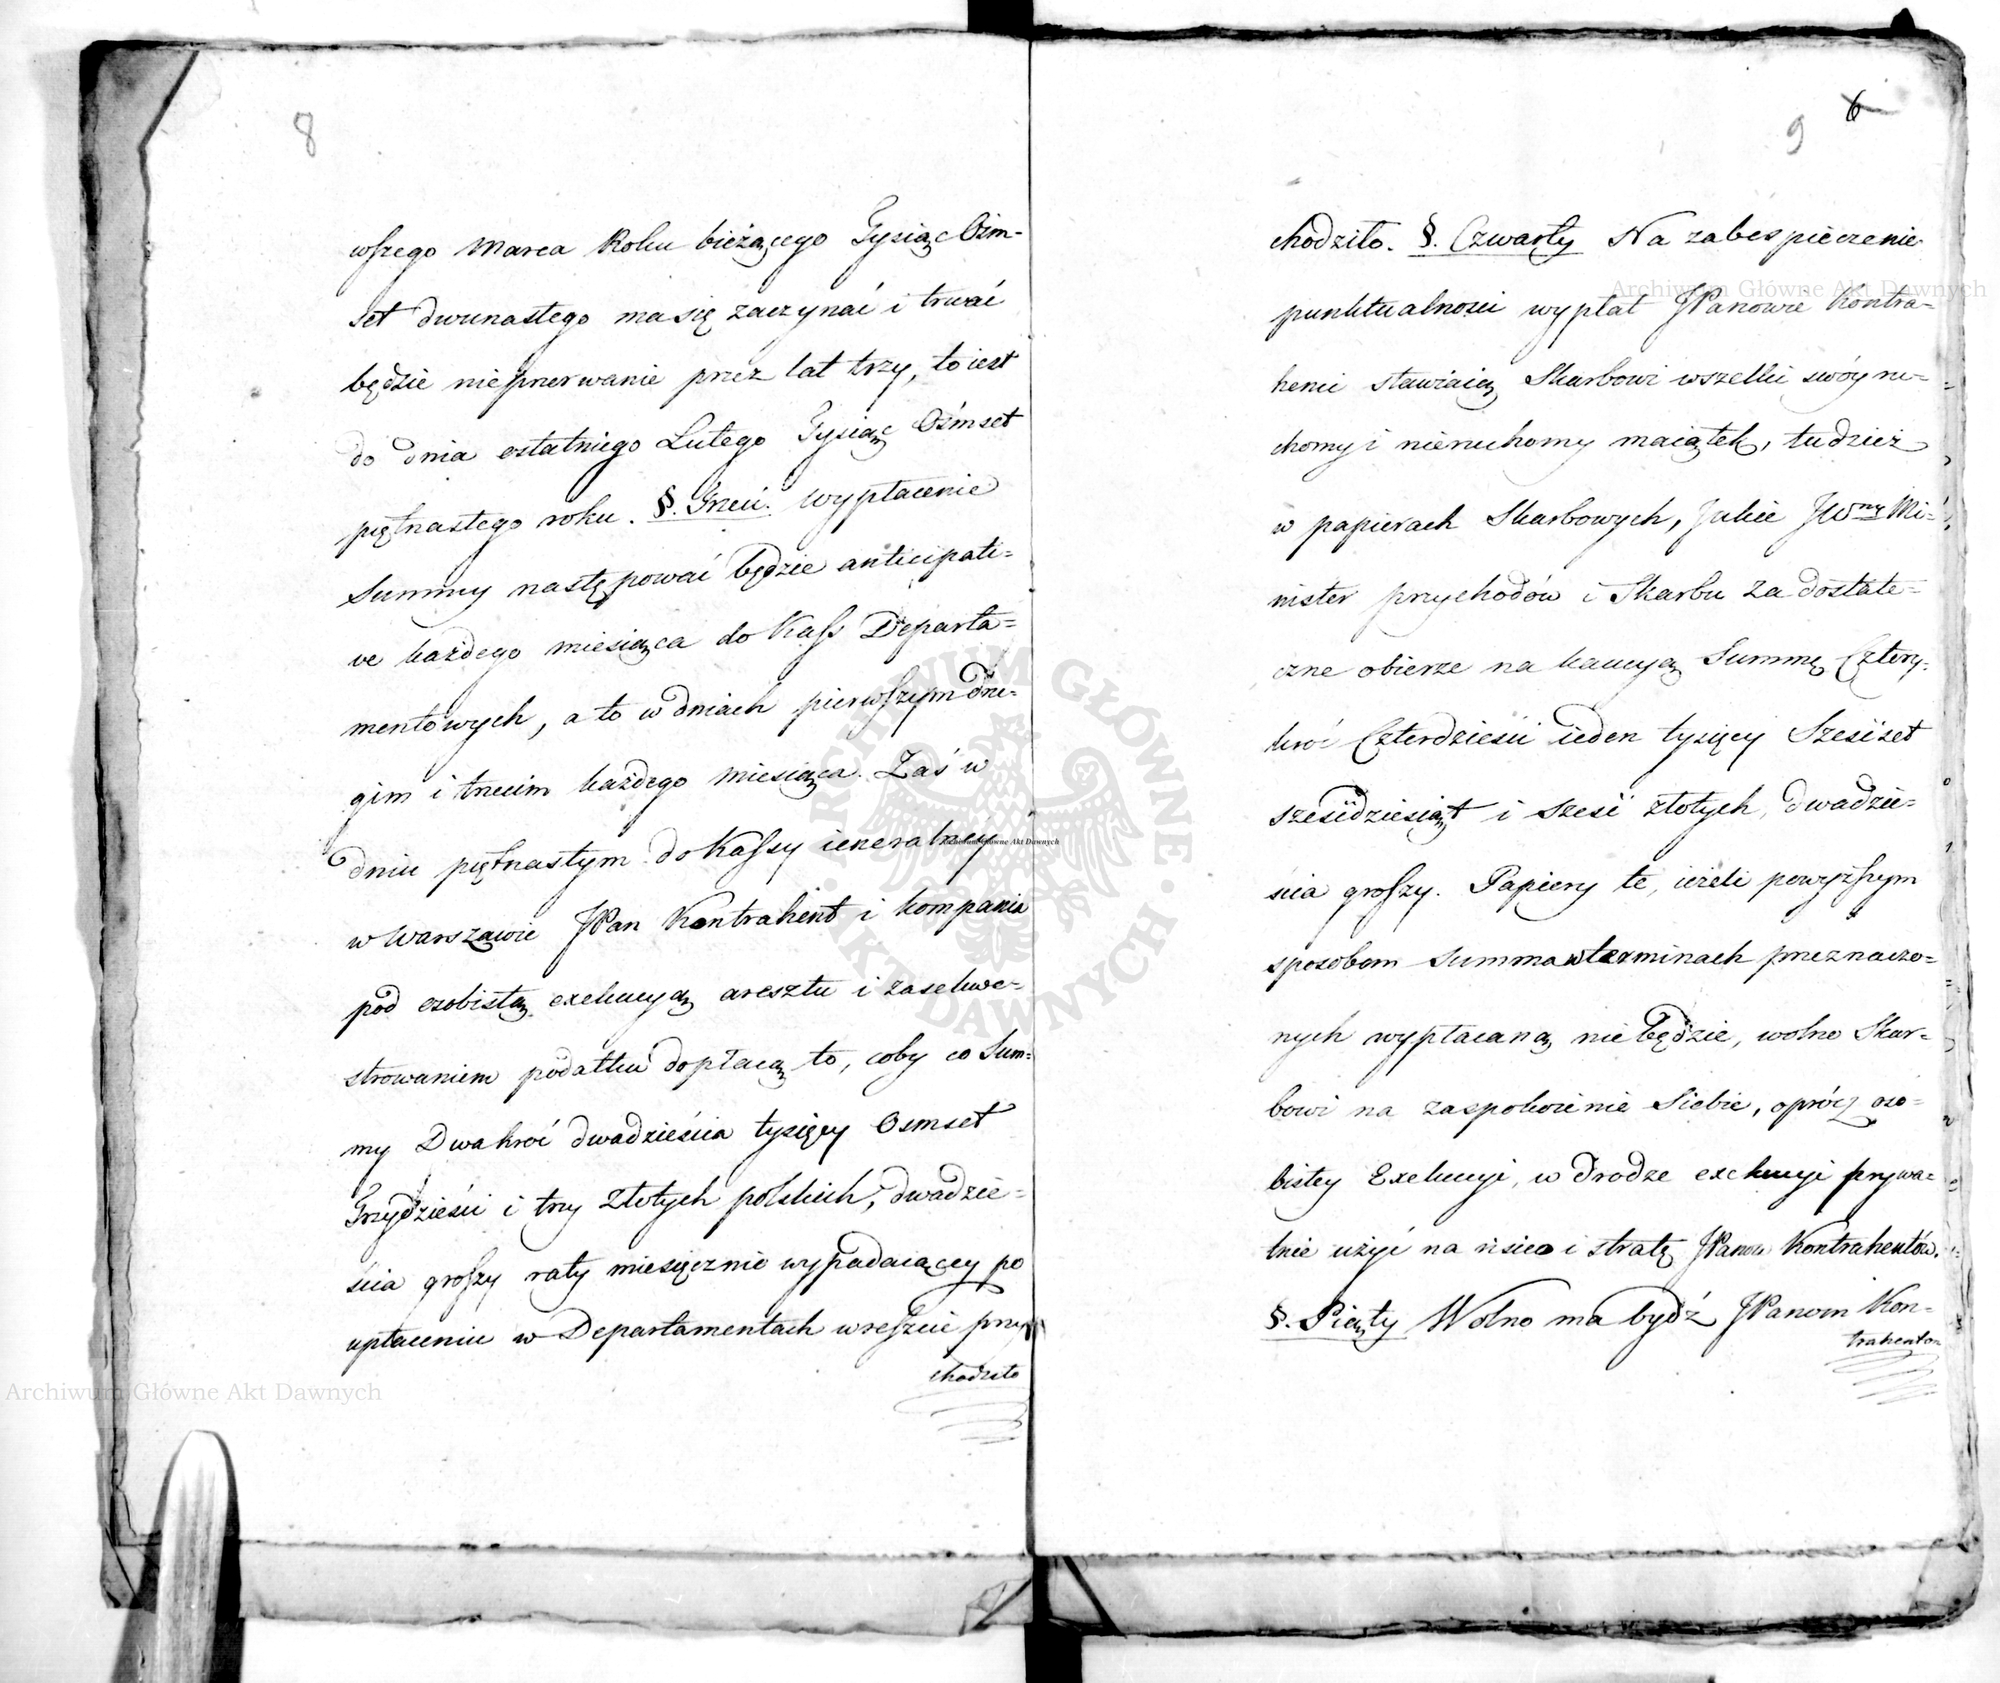 8
wszego Marca Roku bieżącego Tysiąc Ośm-
set dwunastego ma się zaczynać i trwać
będzie nieprzerwanie przez lat trzy, to iest
do dnia ostatniego Lutego Tysiąc Ośmset
piętnastego roku. §. Trzeci. Wypłacenie
Summy następować będzie anticipati=
ve każdego miesiąca do Kass Departa=
mentowych, a to w dniach pierwszym dru-
gim i trzecim każdego miesiąca. Zaś w
dniu piętnastym do Kassy ieneralney
w Warszawie JPan Kontrahent i kompania
pod osobistą exekucyą aresztu i zasekwe-
strowaniem podatku dopłacą to, coby co Sum=
my Dwakroć dwadzieścia tysięcy Osmset
Trzydzieści i trzy Złotych polskich, dwadzie=
ścia groszy raty miesięcznie wypadaiącey po
upłaceniu w Departamentach wreszcie przy
chodziło
9 6
chodziło. §. Czwarty Na zabespieczenie
punktualności wypłat JPanowie Kontra=
henci stawiaią Skarbowi wszelki swóy ru=
chomy i nieruchomy maiątek, tudzież
w papierach Skarbowych, Jakie JWny Mi=
nister przychodów i Skarbu za dostate=
czne obierze na kaucyą Summę Cztery-
kroć Czterdzieści ieden tysięcy Sześćset
sześćdziesiąt i sześć złotych, dwadzie=
ścia groszy. Papiery te, ieżeli powyższym
sposobem summa w terminach przeznaczo=
nych wypłacaną nie będzie, wolno Skar-
bowi na zaspokoienie Siebie, oprócz oso-
bistey Exekucyi, w drodze exekucyi prywa=
tnie użyć na risico i stratę JPanów Kontrahentów.
§. Piąty Wolno ma bydź JPanom Kon-
trahentom
Archiwum Główne Akt Dawnych
Archiwum Główne Akt Dawnych
Archiwum Główne Akt Dawnych
ARCHIWUM GŁÓWNE · AKT DAWNYCH ·